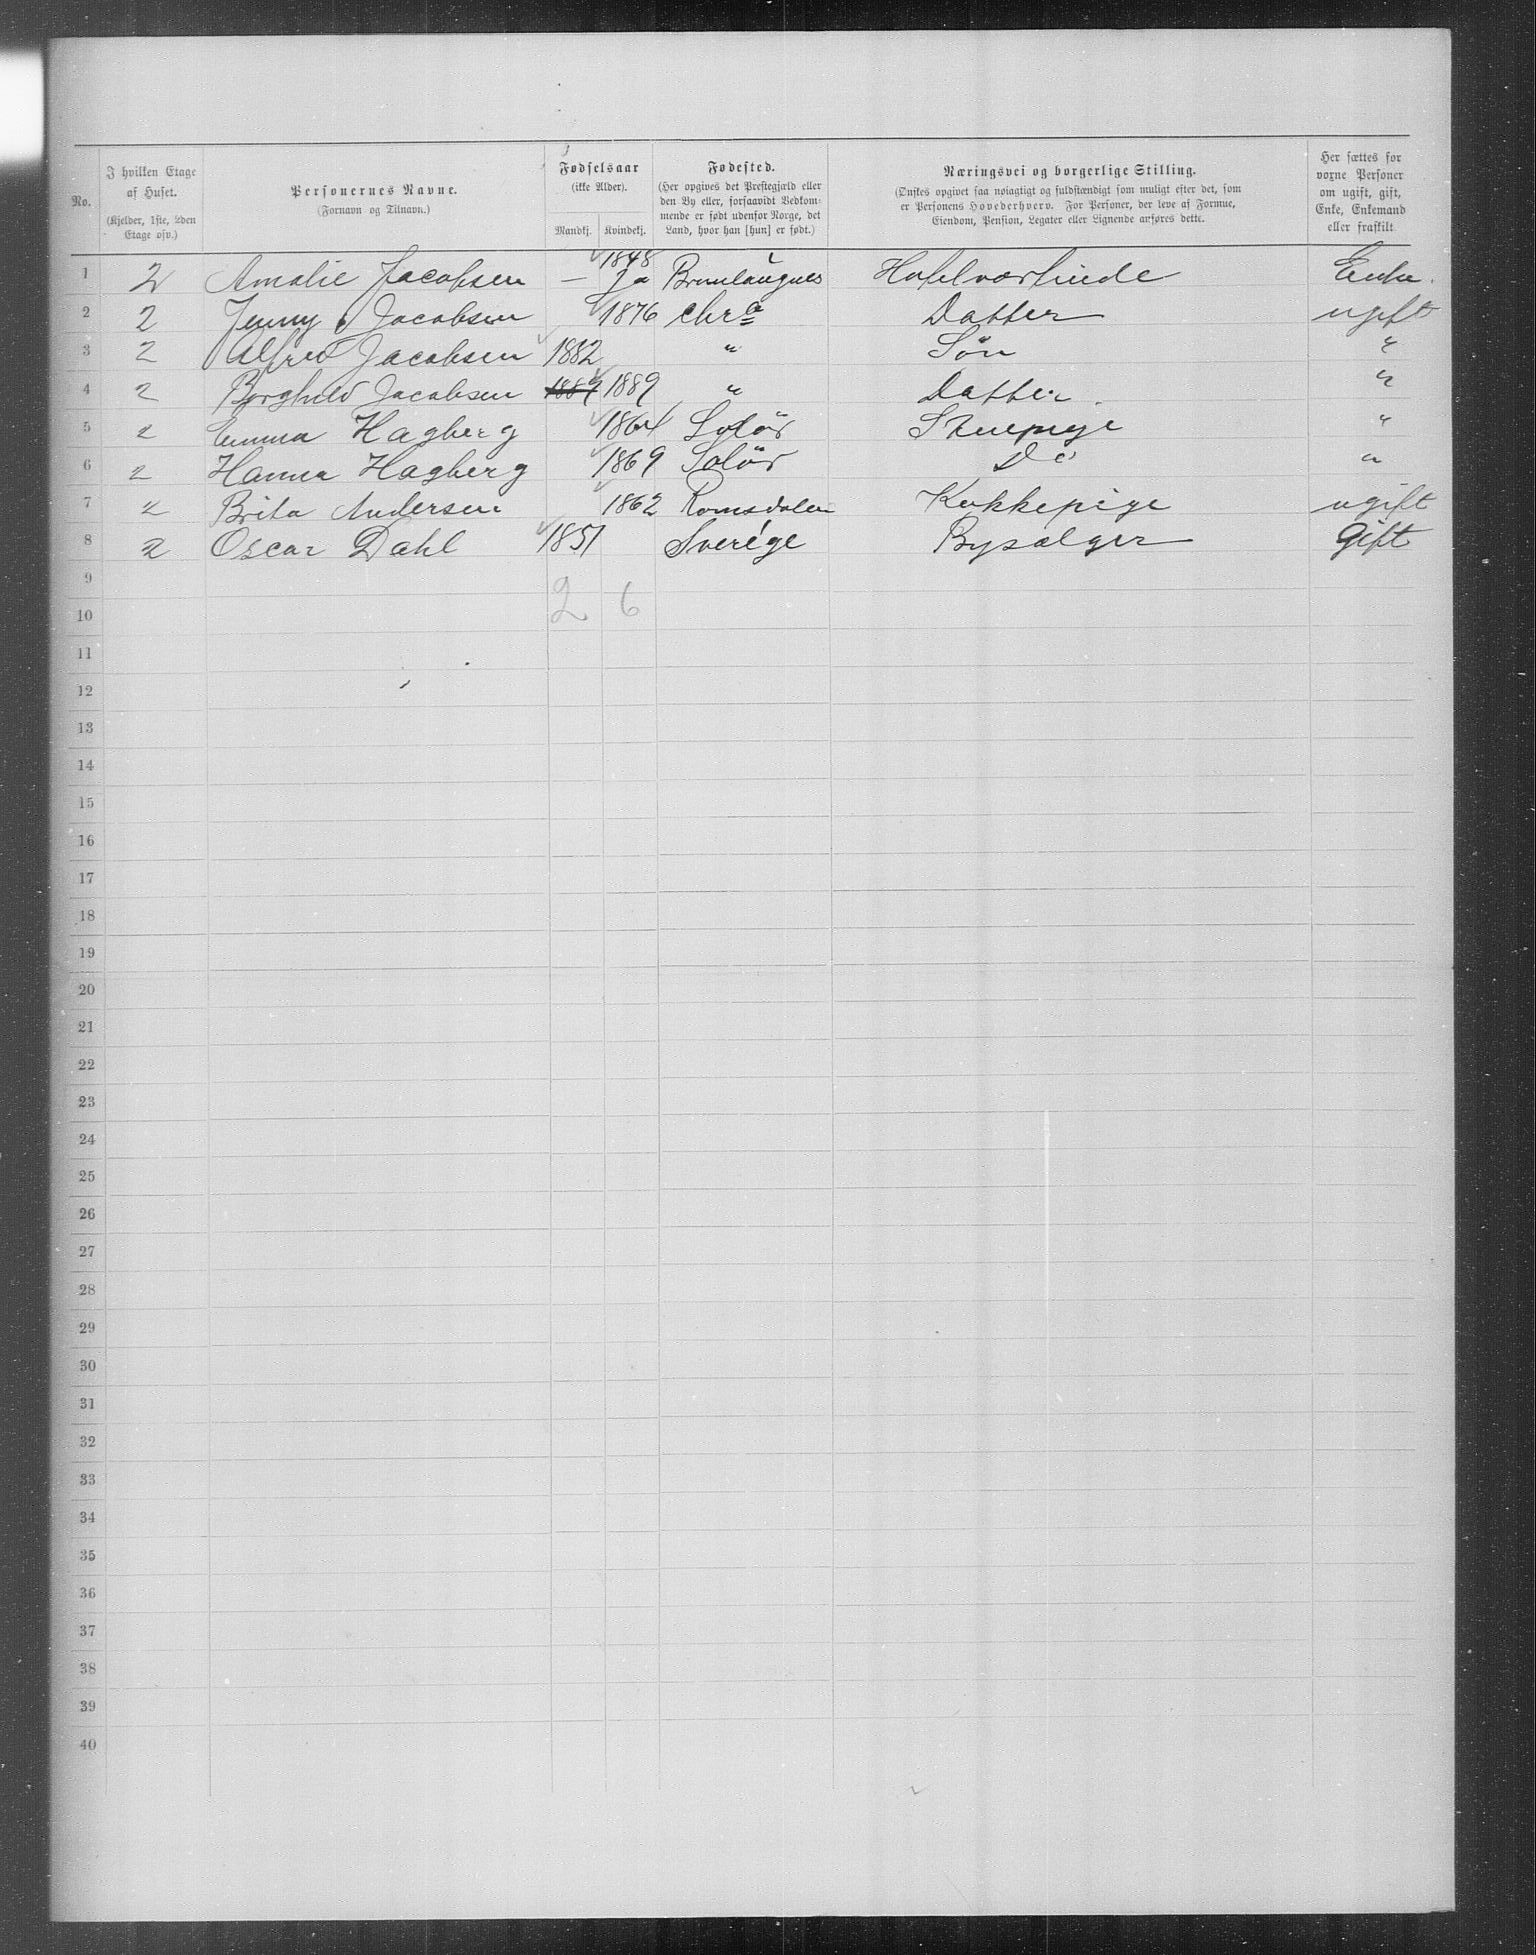 No. I hvilken Etage af Huset. (Kjelder, 1ste, 2den Etage osv.) Personernes Navne. (Fornavn og Tilnavn.) Fødselsaar (ikke Alder). Mandkj. Kvindekj. Fødested. (Her opgives det Prestegjæld eller den By eller, forsaavidt Bedkommende er født udenfor Norge, det Land, hvor han [hun] er født.) Næringsvei og borgerlige Stilling. (Ønskes opgivet saa nøiagtigt og fuldstændigt som muligt efter det, som er Personens Hovederhverv. For Personer, der leve af Formue, Eiendom, Pension, Legater eller Lignende anføres dette. Her sættes for voxne Personer om ugift, gift, Enke, Enkemand eller fraskilt
1 2 Amalie Jacobsen — 1848 Ja Brunlaugnes Hotelværtinde Enke.
2 2 Jenny Jacobsen 1876 Chra Datter ugift
3 2 Alfred Jacobsen 1882 " Søn "
4 2 Borghild Jacobsen 1889 " Datter "
5 2 Emma Hagberg 1864 Solör Stuepige "
6 2 Hanna Hagberg 1869 Solör Do "
7 2 Brita Andersen 1862 Romsdalen Kokkepige ugift
8 2 Oscar Dahl 1851 Sverige Bysælger Gift
9 2 6
10
11
12
13
14
15
16
17
18
19
20
21
22
23
24
25
26
27
28
29
30
31
32
33
34
35
36
37
38
39
40